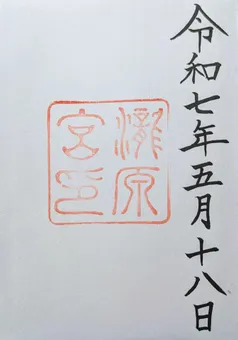 令和七年五月十八日
瀧原
宮印